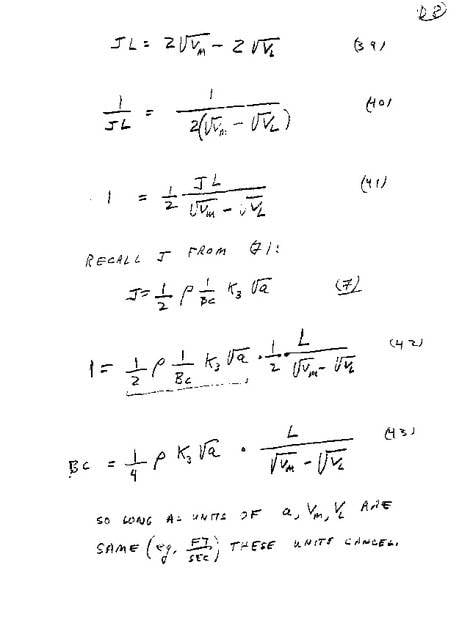 D8
JL = 2√Vm - 2√VL (39)
1/JL = 1/(2(√Vm - √VL)) (40)
1 = 1/2 JL/(√Vm - √VL) (41)
RECALL J FROM (7):
J = 1/2 ρ 1/BC K3 √a (7)
1 = 1/2 ρ 1/BC K3 √a · 1/2 · L/(√Vm - √VL) (42)
BC = 1/4 ρ K3 √a · L/(√Vm - √VL) (43)
SO LONG AS UNITS OF a, Vm, VL ARE
SAME (eg. FT/SEC) THESE UNITS CANCEL.